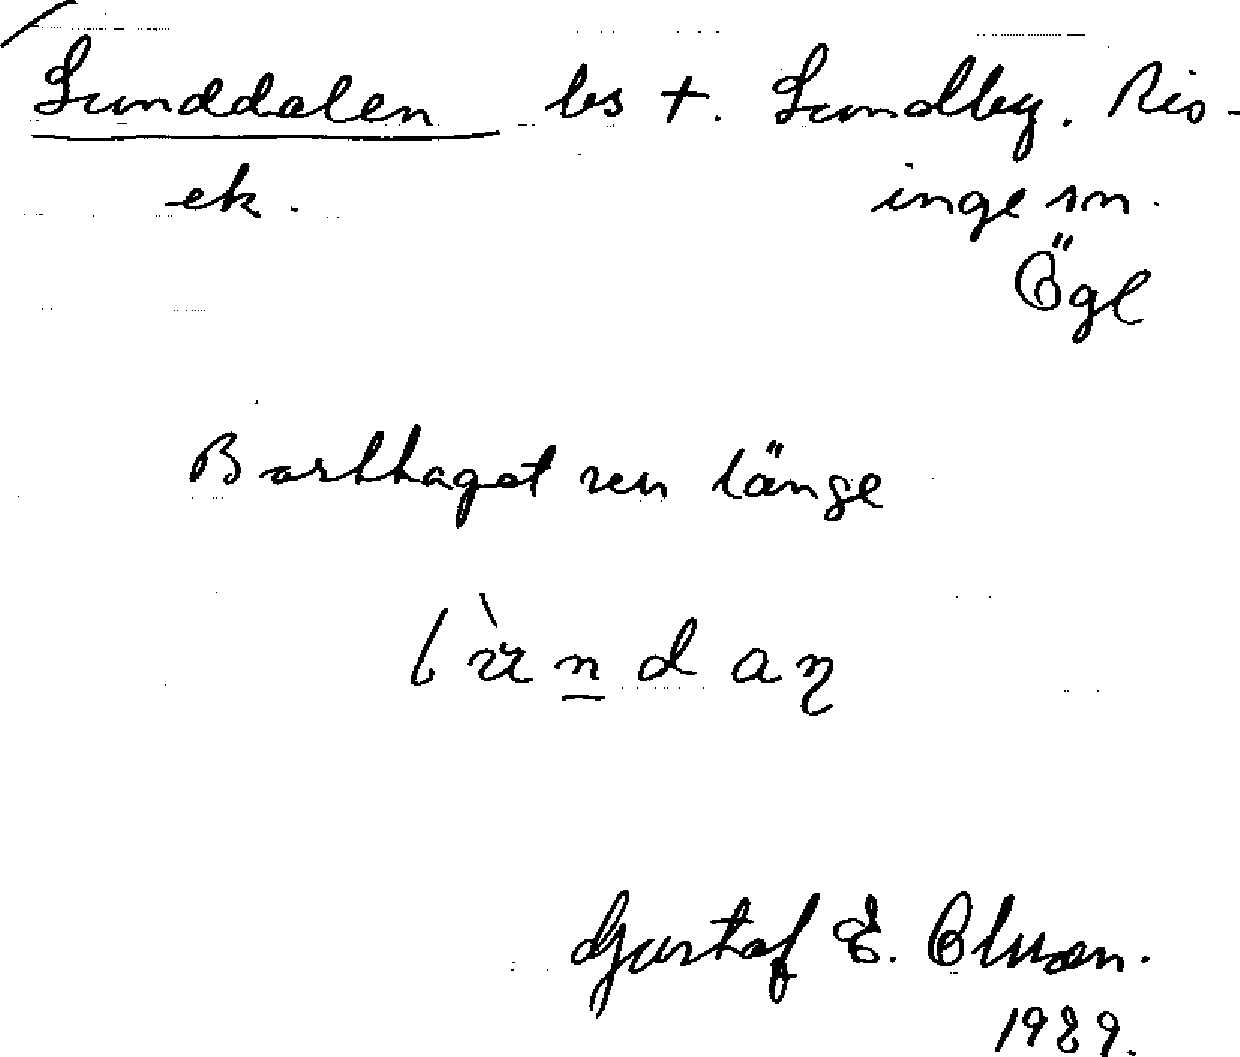 Lunddalen bs t. Lundby. Ris-
ek. inge sn.
Ögl
Borttaget sen länge
Gustaf E. Olsson.
1929.